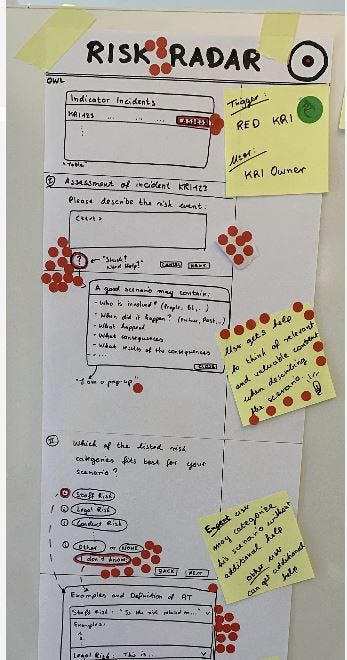 RISK RADAR
OWL
Indicator Incidents
KRI123 ... ... ASSESS
"Table"
Trigger:
RED KRI
User:
KRI Owner
I Assessment of incident KRI123
Please describe the risk event:
<text>
? ← "Stuck? Need Help!" CANCEL NEXT
A good scenario may contain:
- Who is involved? (People, BU, ..)
- When did it happen? (Future, Past, ..)
- What happened
- What consequences
- What results of the consequences
- ....
CLOSE
"I am a pop-up"
User gets help
to think of relevant
and valuable content
when describing
the scenario.
II Which of the listed risk
categories fits best for your
scenario?
Staff Risk
Legal Risk
Conduct Risk
Other or NONE
I don't know!
BACK NEXT
Expert user
may categorize
his scenario without
additional help
other user
can get additional
help
Examples and Definition of RT
Staff Risk: "Is the risk related to..."
Examples:
1.
2.
Legal Risk: This is ...